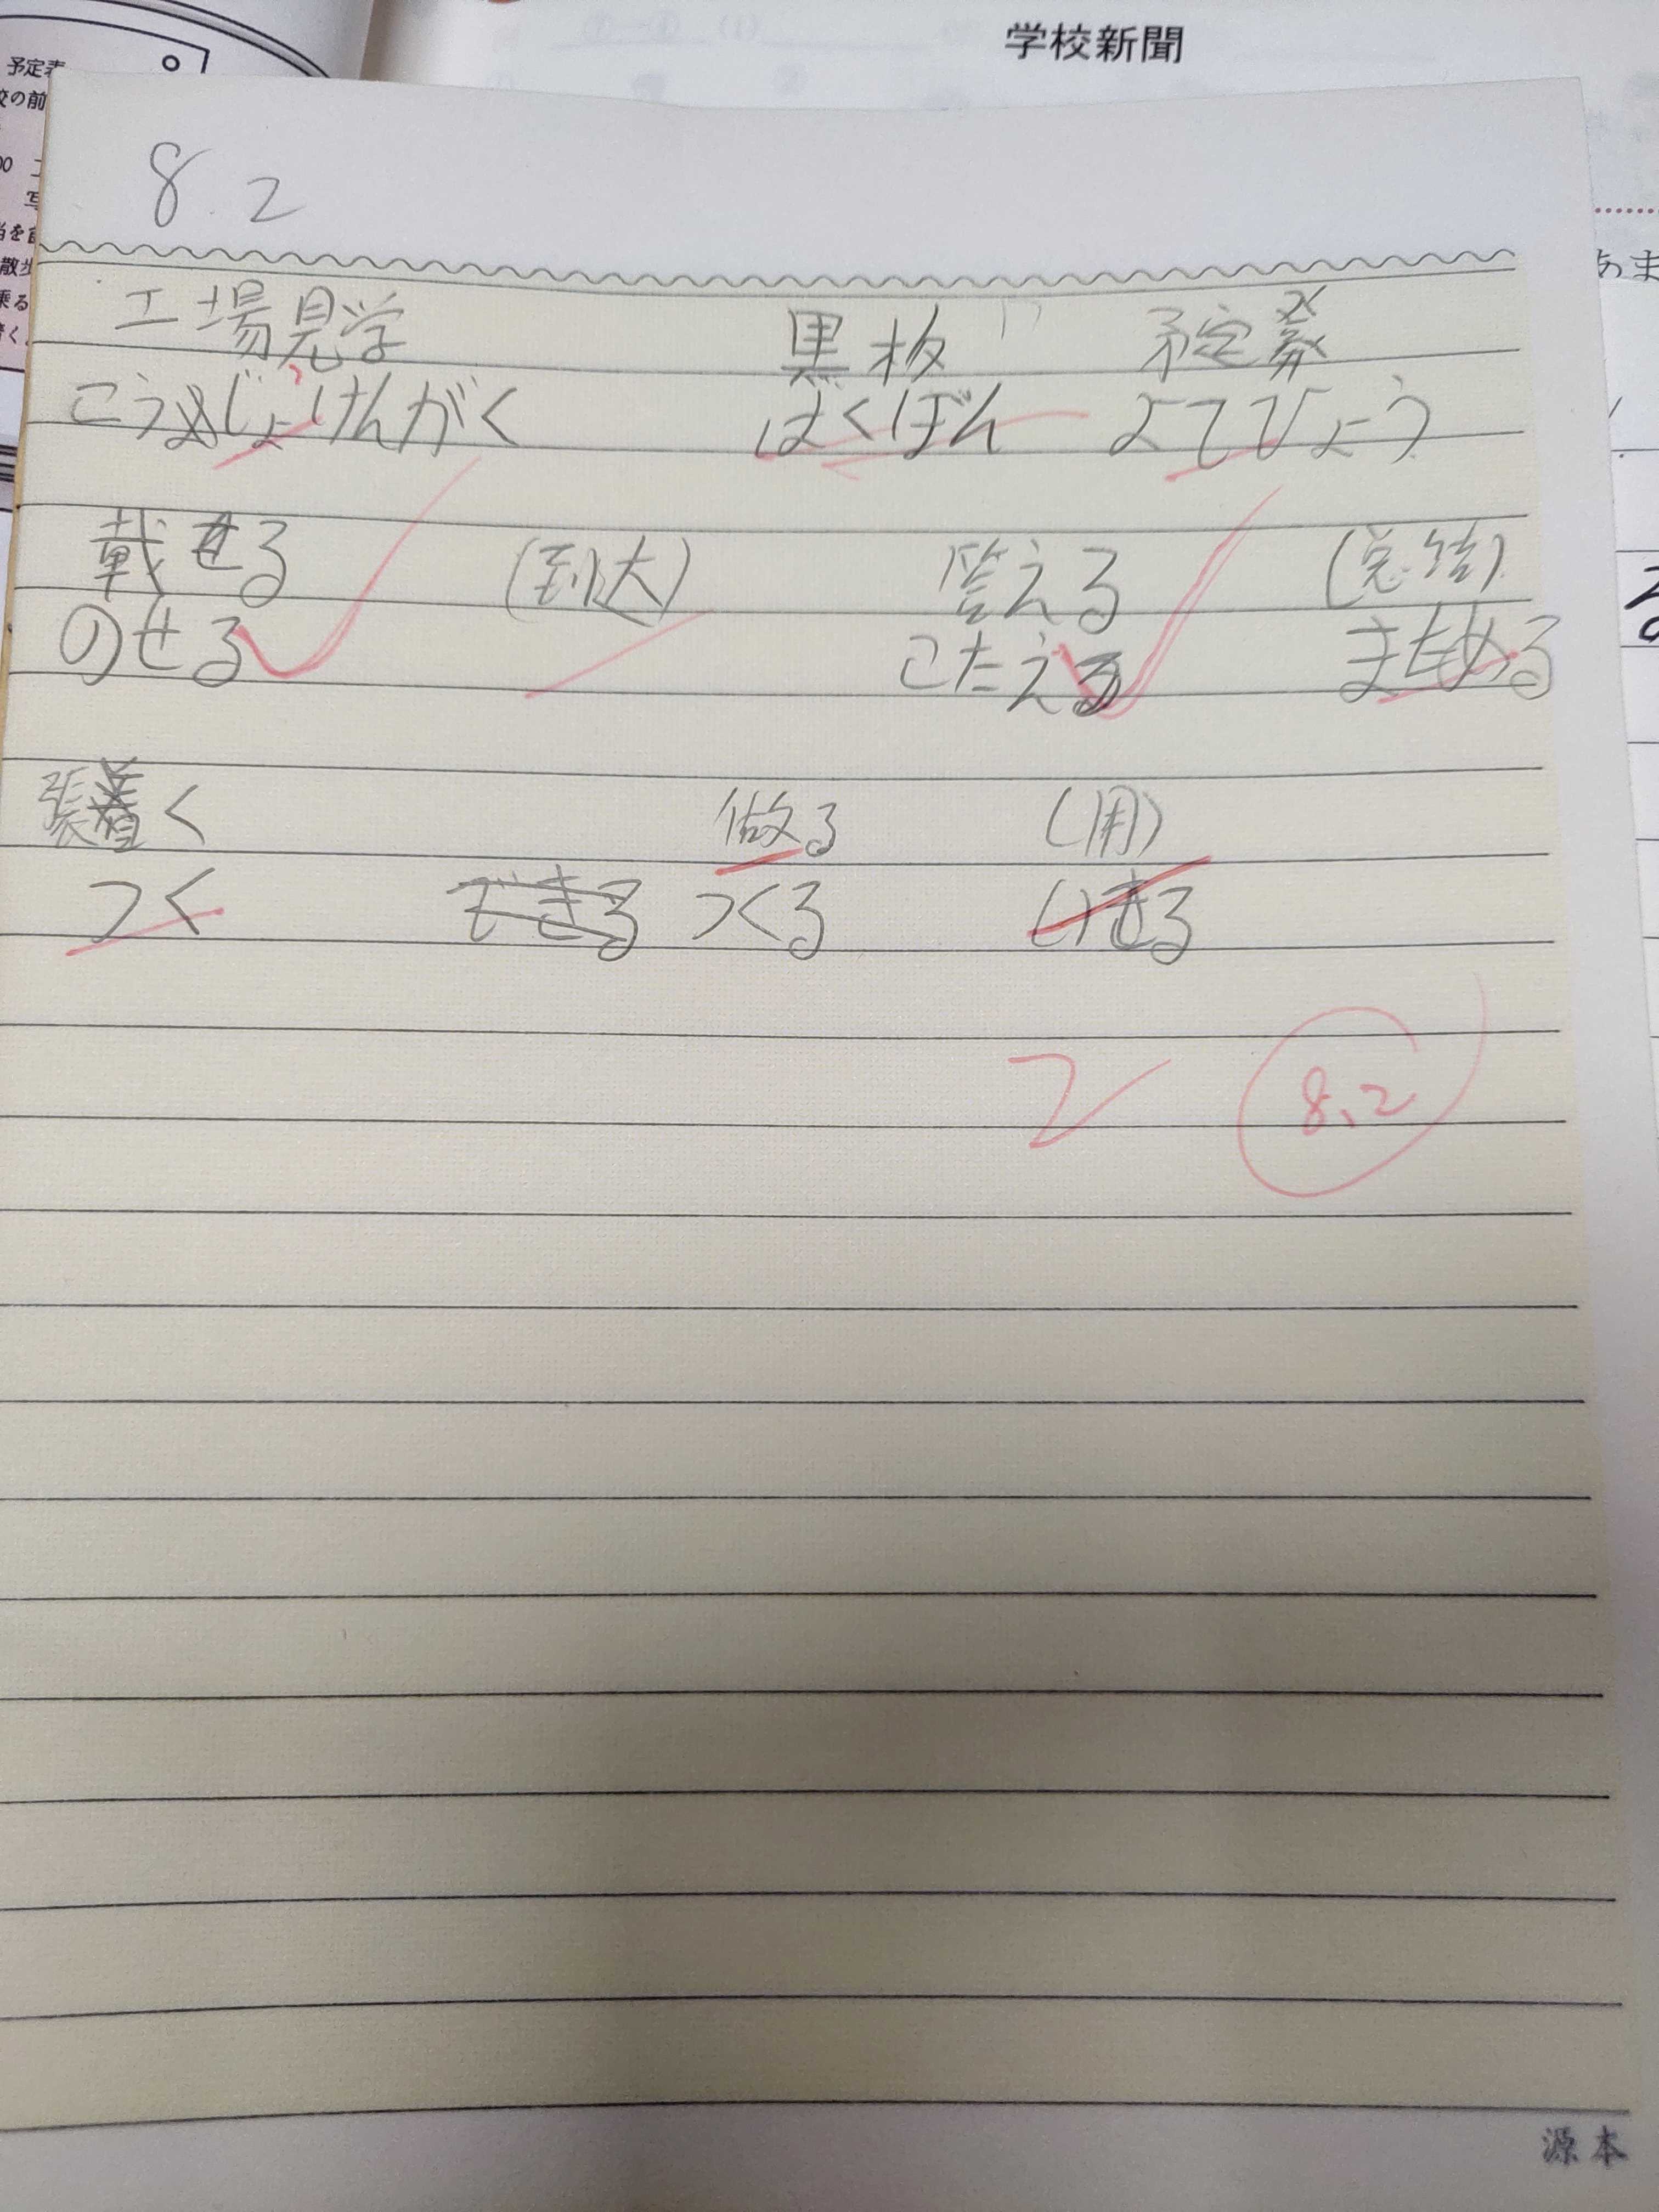 学校新聞
予定表
校の前
8.2
工場見学 黒板 予定表
こうじょけんがく ばくばん よてひょう
載せる (到达) 答える (总结)
のせる こたえる まとめる
張着く 做る (用)
つく できる つくる いきる
2 8.2
源本